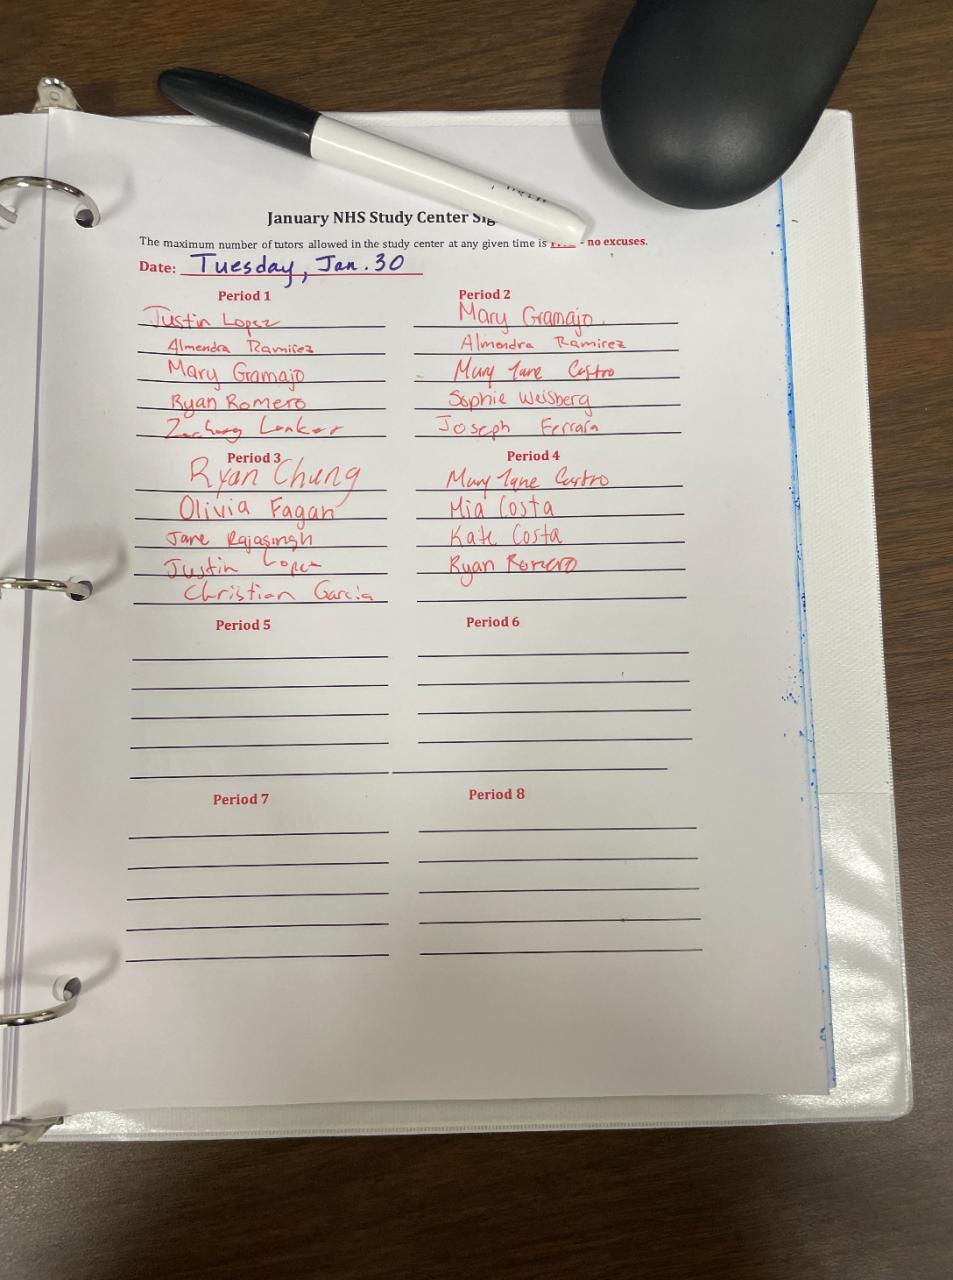 January NHS Study Center
The maximum number of tutors allowed in the study center at any given time is - no excuses.
Date: Tuesday, Jan. 30
Period 1
Justin Lopez
Almendra Ramirez
Mary Gramajo
Ryan Romero
Zachary Lenker
Period 2
Mary Gramajo
Almendra Ramirez
Mary Jane Castro
Sophie Weisberg
Joseph Ferrara
Period 3
Ryan Chung
Olivia Fagan
Jane Rajasingh
Justin Lopez
Christian Garcia
Period 4
Mary Jane Castro
Mia Costa
Kate Costa
Ryan Romero
Period 5
Period 6
Period 7
Period 8